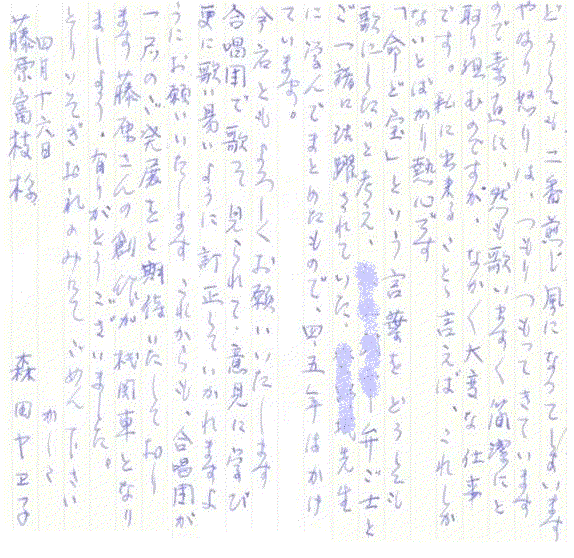 どうしても、二番煎じ風になってしまいます
やはり怒りは、つもりつもってきています
ので素直に、然も歌い易すく簡潔にと
取り組むのですが、なかなか大変な仕事
です。私に出来ることと言えば、これしか
ないとばかり熱心です
「命ど宝」という言葉をどうしても
歌にしたいと考え、弁ご士と
ご一諸に活躍されていた、先生
に学んでまとめたもので、四五年はかけ
ています。
今后ともよろしくお願いいたします
合唱団で歌って見られて、意見に学び
更に歌い易いように訂正していかれますよ
うにお願いいたします これからも、合唱団が
一层のご発展をと期待いたしており
ます 藤原さんの創作が機関車となり
ましょう。有りがとうございました。
とりいそぎお礼のみにて ごめん下さい
かしこ
四月十六日
森田ヤヱ子
藤原富枝様